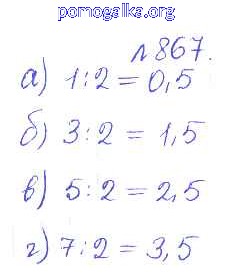 pomogalka.org
№867.
а) 1:2 = 0,5
б) 3:2 = 1,5
в) 5:2 = 2,5
г) 7:2 = 3,5